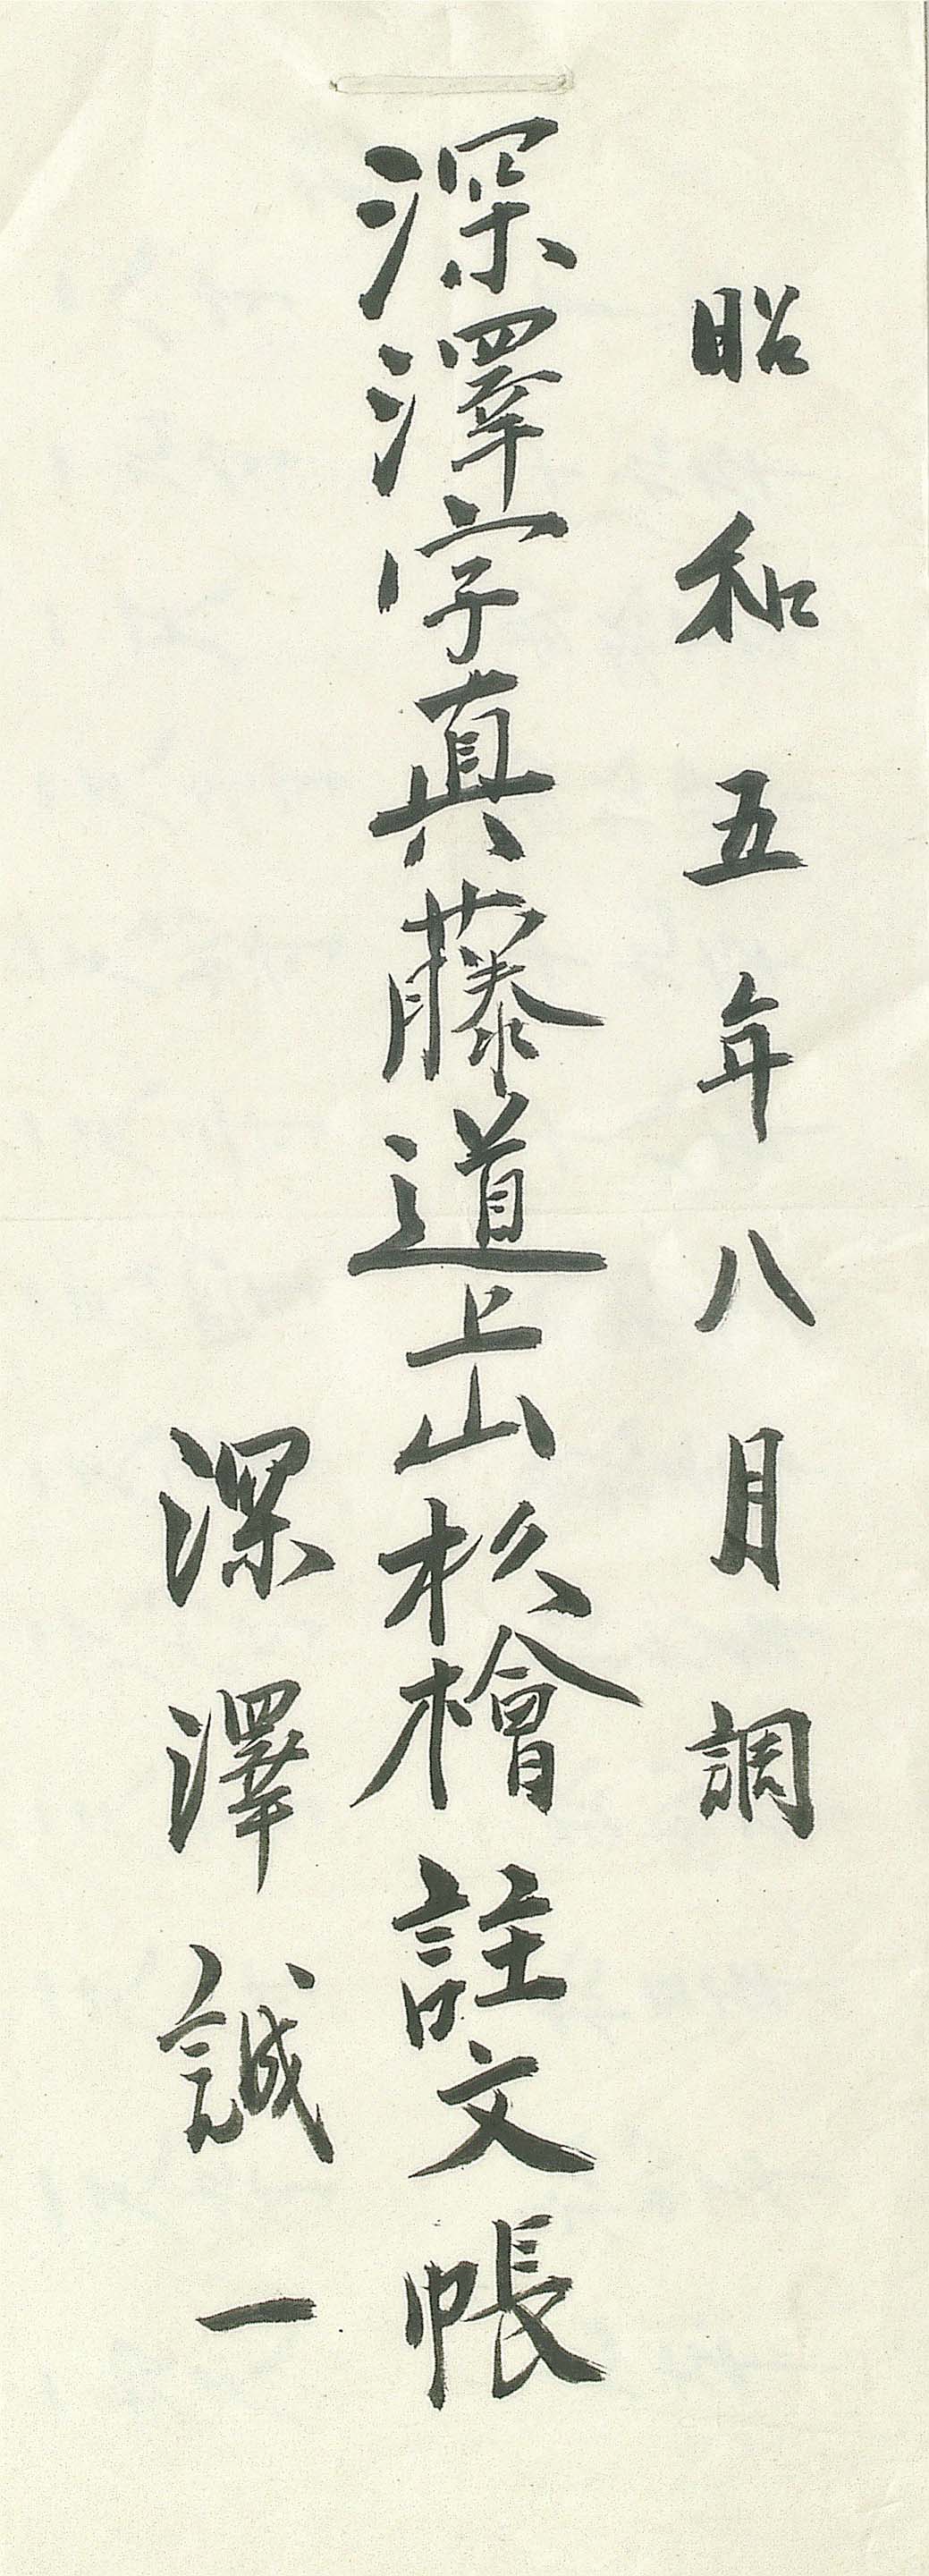 昭和五年八月調
深澤字真藤道上山杉檜註文帳
深澤誠一